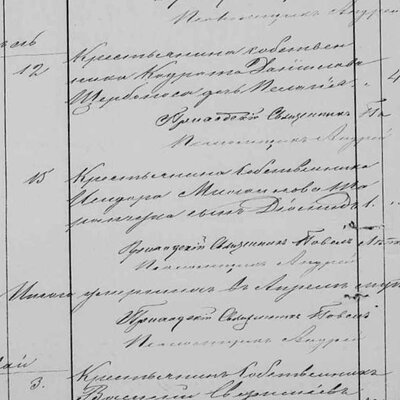 Псаломщикъ Андрей
12 Крестьянина собствен
ника Кондрата Даниилова
Щербоноса дочь Пелагія.
Приходскій Священникъ Па
Псаломщикъ Андрей
15 Крестьянина собственника
Ѳеодора Михаилова
сынъ
Приходскій Священникъ Павелъ
Псаломщикъ Андрей
Итого умершихъ въ Апрѣлѣ
Приходскій Священникъ Павелъ
Псаломщикъ Андрей
ай
3. Крестьянинъ собственникъ
Василій